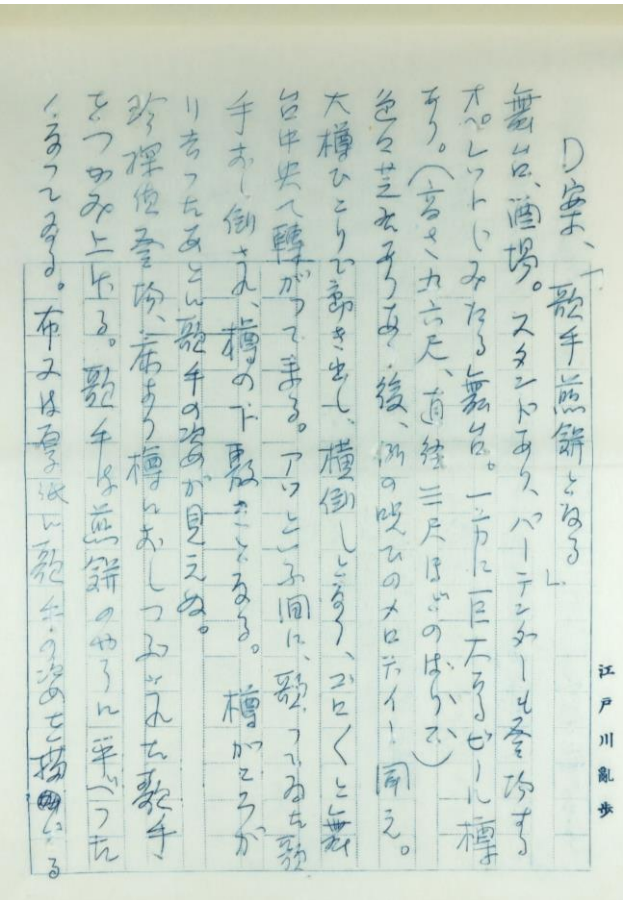 D案、「歌手煎餅となる」
舞台、酒場。スタンドあり、バーテンダーも登場する
オペレットじみたる舞台。一方に巨大なるビール樽
あり。(高さ五六尺、直径三尺ほどのばかでか)
色々芝居あり 後、例の呪ひのメロディー聞え。
大樽ひとりで動き出し、横倒しとなり、ゴロくと舞
台中央へ轉がつて来る。アツといふ間に、歌つてゐた歌
手おし倒され、樽の下敷きとなる。樽がころが
り去つたあとに歌手の姿が見えぬ。
珍探偵登場、床より樽におしつぶされた歌手
をつかみ上げる。歌手は煎餅のやうに平べつた
くなつてゐる。布又は厚紙に歌手の姿を描ける
江戸川亂歩